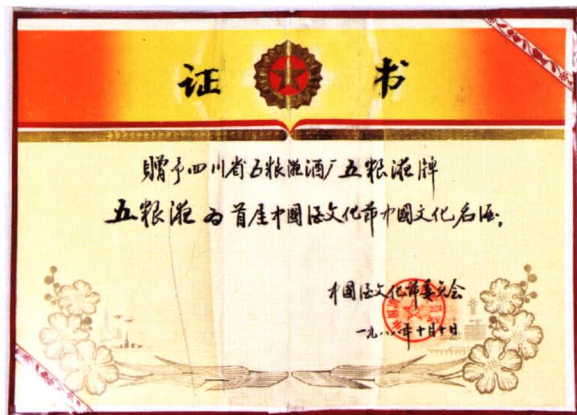 证书
赠予四川省五粮液酒厂五粮液牌
五粮液为首届中國酒文化节中國文化名酒。
中國酒文化节委员会
一九八八年十月十日